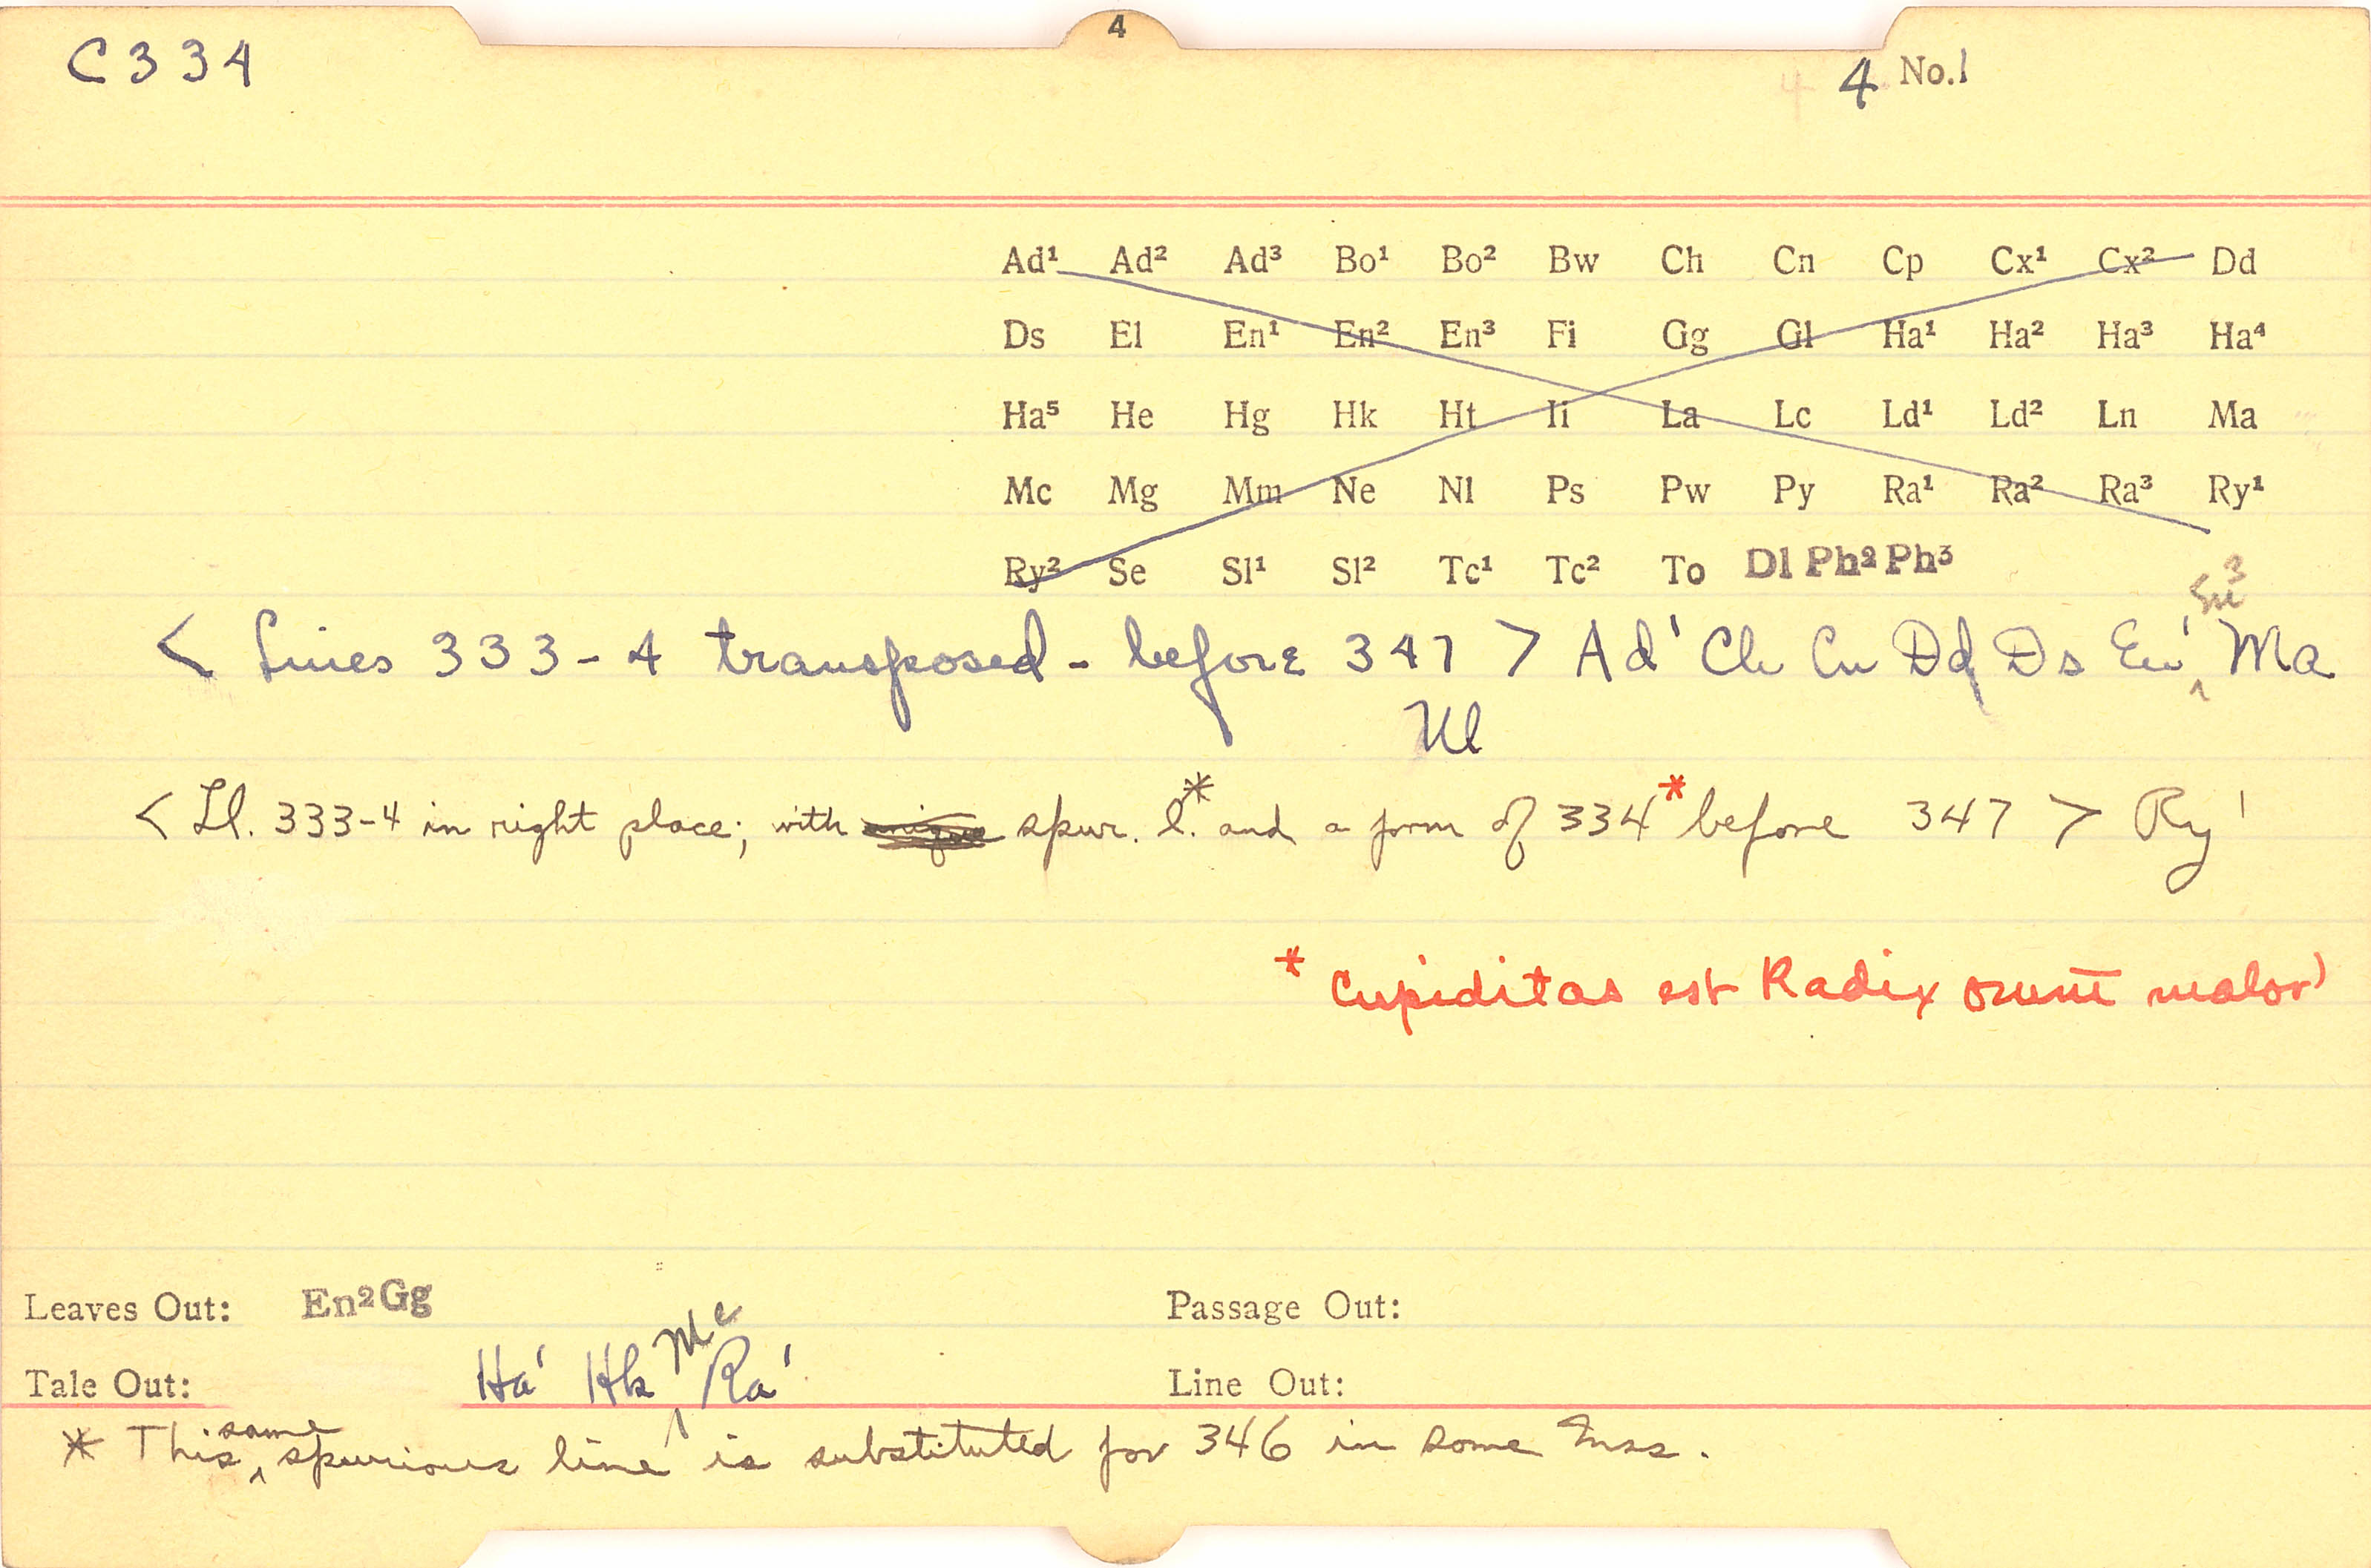 4
C334
4 No.1
Ad¹ Ad² Ad³ Bo¹ Bo² Bw Ch Cn Cp Cx¹ Cx² Dd
Ds El En¹ En² En³ Fi Gg Gl Ha¹ Ha² Ha³ Ha⁴
Ha⁵ He Hg Hk Ht Ii La Lc Ld¹ Ld² Ln Ma
Mc Mg Mm Ne Nl Ps Pw Py Ra¹ Ra² Ra³ Ry¹
Ry² Se Sl¹ Sl² Tc¹ Tc² To Dl Ph² Ph³
< Lines 333-4 transposed - before 347 > Ad¹ Ch Cn Dd Ds En¹ En³ Ma
Nl
< Ll. 333-4 in right place; with spur. l.* and a form of 334* before 347 > Ry¹
* Cupiditas est Radix omnī malor)
Leaves Out: En²Gg
Passage Out:
Tale Out: Ha¹ Hk Mc Ra¹
Line Out:
* This same spurious line is substituted for 346 in some mss.